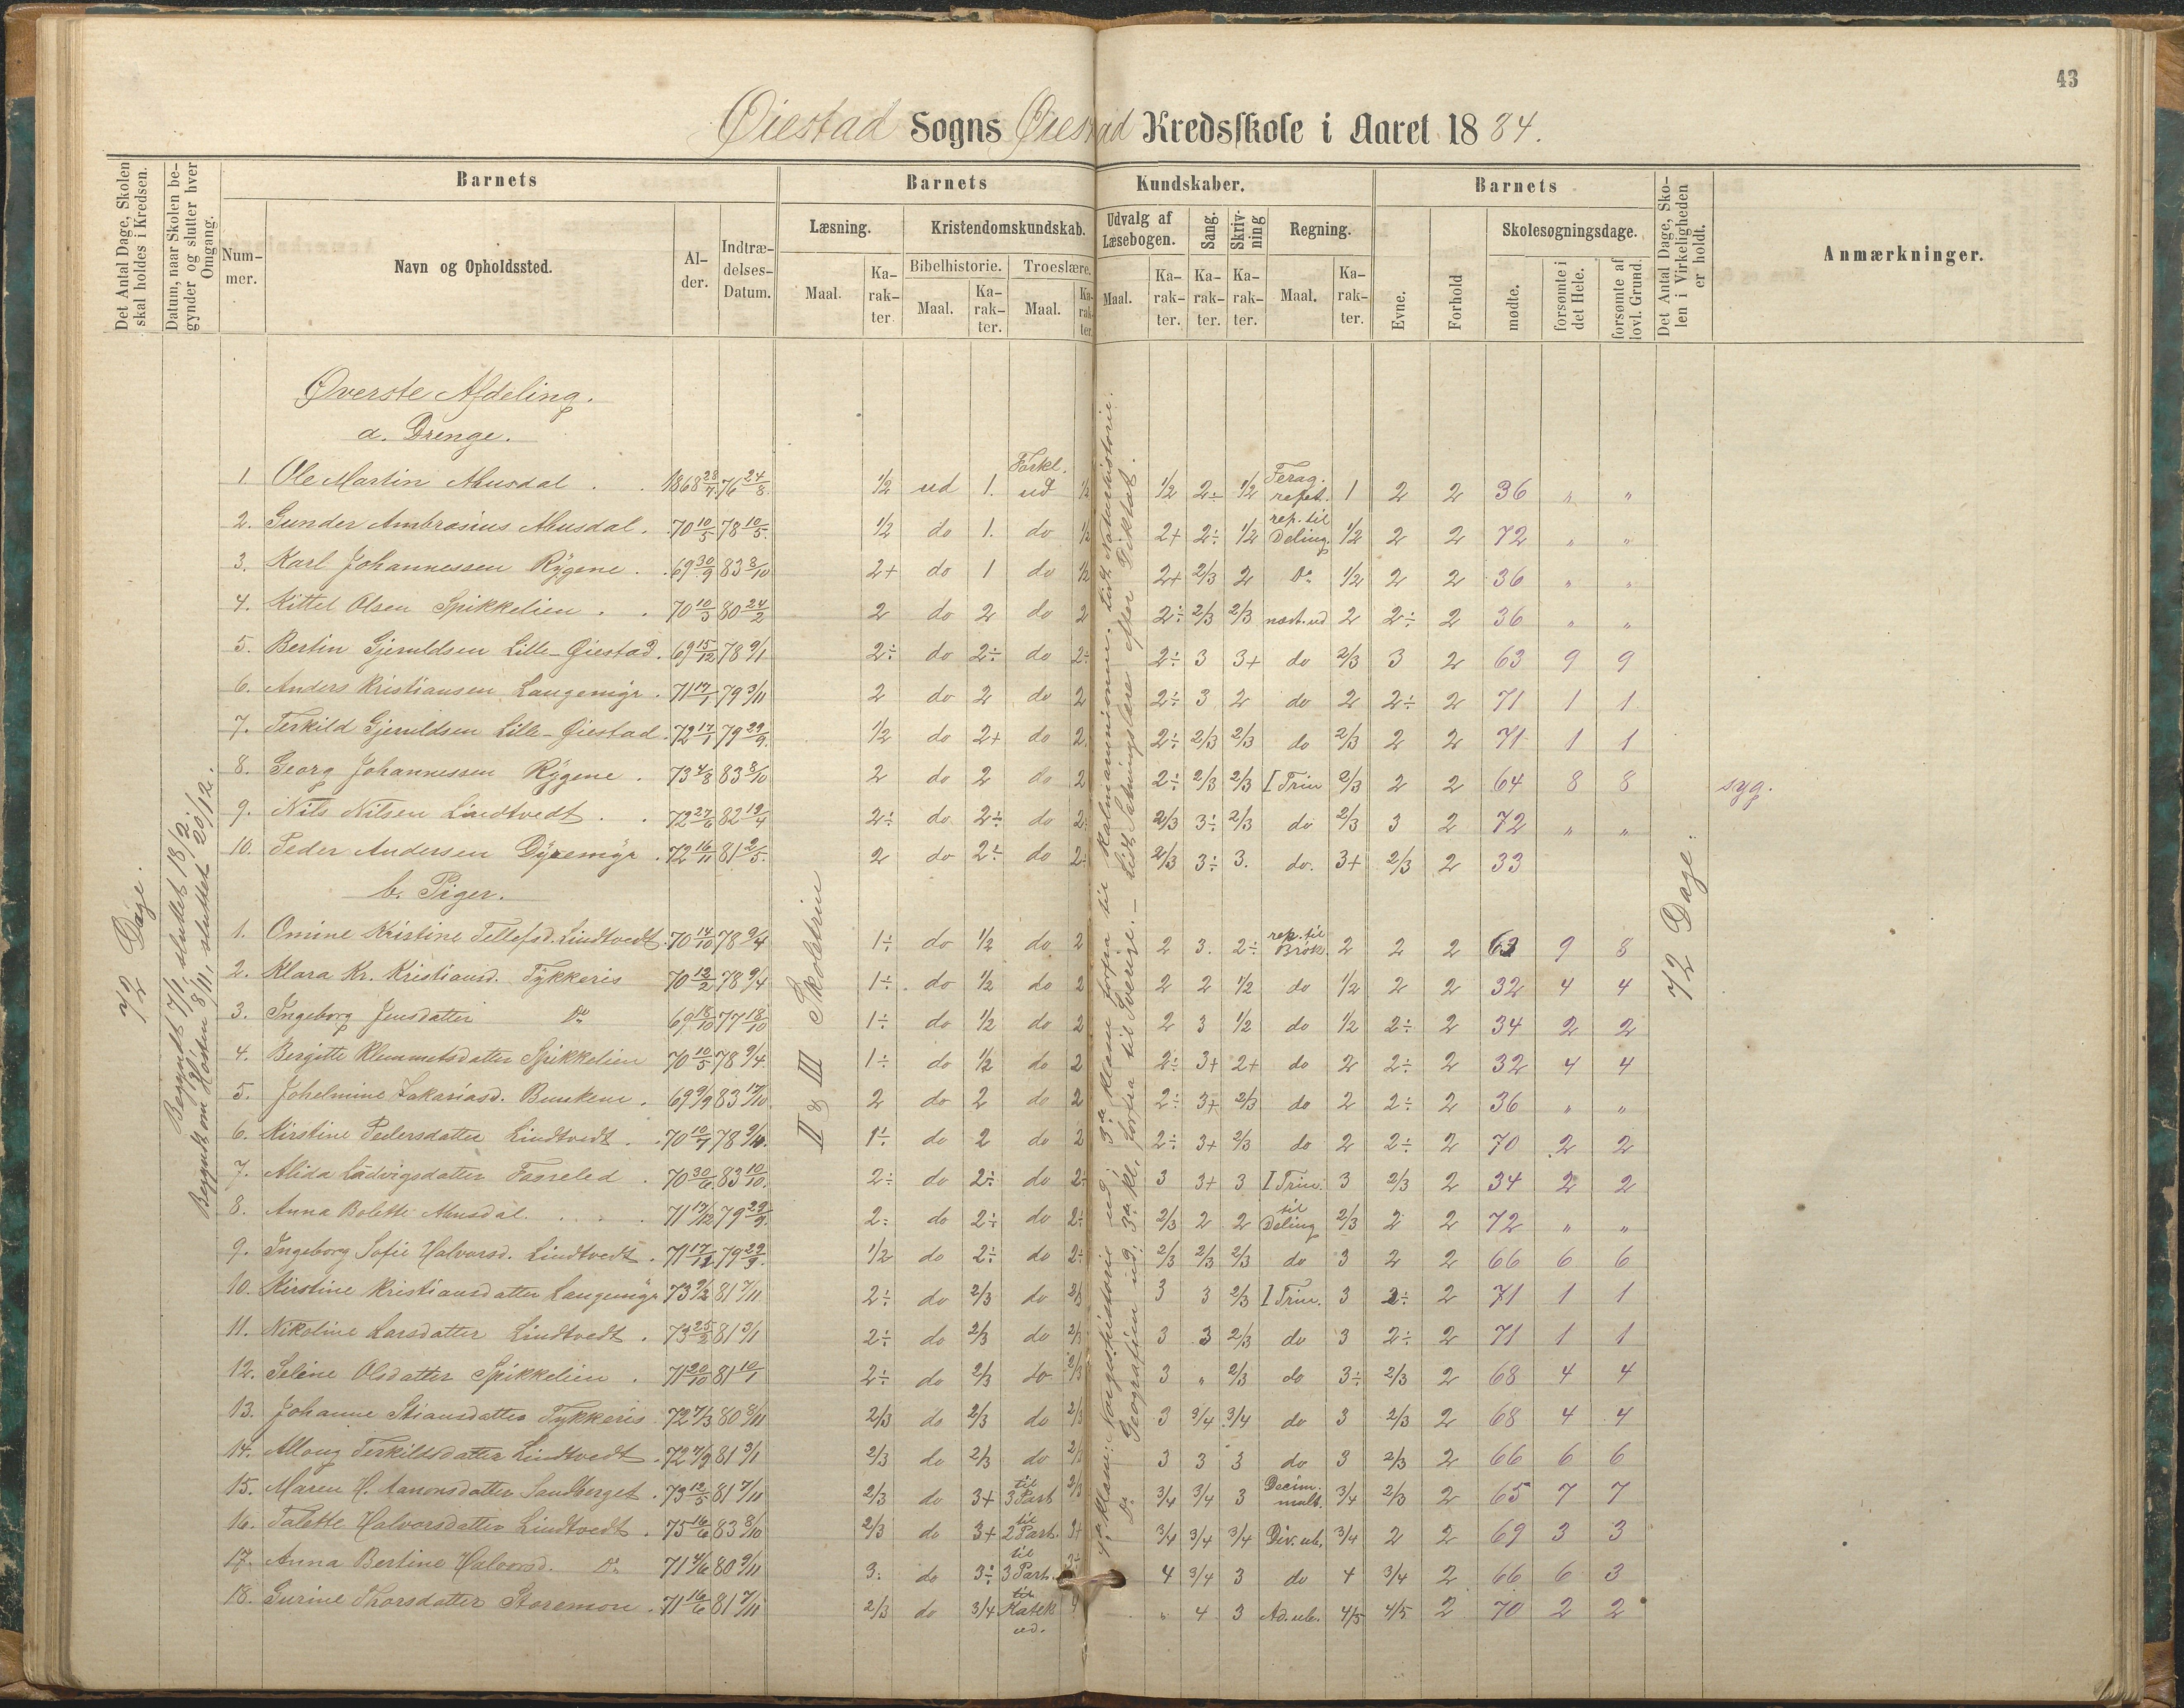 43
Øiestad Sogns Øiestad Kredsskole i Aaret 1884.
Det Antal Dage, Skolen skal holdes i Kredsen.
Datum, naar Skolen begynder og slutter hver Omgang.
Barnets
Nummer.
Navn og Opholdssted.
Alder.
Indtrædelses-Datum.
Barnets Kundskaber.
Læsning.
Maal.
Karakter.
Kristendomskundskab.
Bibelhistorie.
Maal.
Karakter.
Troeslære.
Maal.
Karakter.
Udvalg af Læsebogen.
Maal.
Karakter.
Sang.
Karakter.
Skrivning
Karakter.
Regning.
Maal.
Karakter.
Barnets
Evne.
Forhold
Skolesøgningsdage.
mødte.
forsømte i det Hele.
forsømte af lovl. Grund.
Det Antal Dage, Skolen i Virkeligheden er holdt.
Anmærkninger.
72 Dage.
Begyndt 7/1, sluttet 18/2.
Begyndt om Høsten 8/11, sluttet 20/12.
II & III Skoletrin
72 Dage.
Øverste Afdeling.
a. Drenge.
1 Ole Martin Ahusdal . . 1868 28/7 76 24/8 1/2 ud 1. Forkl. ud 1/2 1/2 2÷ 1/2 Ferag. repet. 1 2 2 36 " "
2. Gunder Ambrosius Ahusdal . 70 10/5 78 10/5 1/2 do 1. do 1/2 2+ 2÷ 1/2 rep. til Deling. 1/2 2 2 72 " "
3. Karl Johannessen Rygene . 69 30/9 83 8/10 2+ do 1 do 1/2 2+ 2/3 2 Do 1/2 2 2 36 " "
4. Kittel Olsen Spikkelien . . 70 10/3 80 24/2 2 do 2 do 2 2÷ 2/3 2/3 2 2÷ 2 36 " "
5. Bertin Gjeruldsen Lille-Øiestad . 69 15/12 78 9/1 2÷ do 2÷ do 2÷ 2÷ 3 3+ do 2/3 3 2 63 9 9
6. Anders Kristiansen Langemyr . 71 17/1 79 3/11 2 do 2 do 2 2÷ 3 2 do 2 2÷ 2 71 1 1
7. Terkild Gjeruldsen Lille-Øiestad . 72 17/1 79 29/9 1/2 do 2+ do 2. 2÷ 2/3 2/3 do 2/3 2 2 71 1 1
8. Georg Johannessen Rygene . 73 4/8 83 8/10 2 do 2 do 2 2÷ 2/3 2/3 I Trin 2/3 2 2 64 8 8 syg.
9. Nils Nilsen Lindtvedt . . 72 27/6 82 19/4 2÷ do 2÷ do 2÷ 2/3 3÷ 2/3 do 2/3 3 2 72 " "
10. Peder Andersen Dyremyr . 72 16/11 81 2/5 2 do 2÷ do 2÷ 2/3 3÷ 3. do. 3+ 2/3 2 33
b. Piger.
1. Omine Kristine Tellefsd. Lindtvedt . 70 14/10 78 9/4 1÷ do 1/2 do 2 2 3. 2÷ rep. til Brøk. 2 2 2 63 9 8
2. Klara Kr. Kristiansd. Tykkeris 70 12/2 78 9/4 1÷ do 1/2 do 2 2 2 1/2 do 1/2 2 2 32 4 4
3. Ingeborg Jensdatter Do 69 18/10 77 18/10 1÷ do 1/2 do 2 2 3 1/2 do 1/2 2÷ 2 34 2 2
4. Bergitte Klemmetsdatter Spikkelien 70 10/5 78 9/4 1÷ do 1/2 do 2 2÷ 3+ 2+ do 2 2÷ 2 32 4 4
5. Johelmine Zakariasd. . 69 9/9 83 17/10 2 do 2 do 2 2÷ 3+ 2/3 do 2 2÷ 2 36 " "
6. Kirstine Pedersdatter Lindtvedt . 70 10/7 78 9/4 1÷ do 2 do 2 2÷ 3+ 2/3 do 2 2÷ 2 70 2 2
7. Alida Ludvigsdatter . 70 30/6 83 10/10 2÷ do 2÷ do 2÷ 3 3+ 3 I Trin. 3 2/3 2 34 2 2
8. Anna Bolette Ahusdal . . . 71 17/12 79 29/9 2÷ do 2÷ do 2÷ 2/3 2 2 til Deling 2/3 2 2 72 " "
9. Ingeborg Sofie Halvorsd. Lindtvedt . 71 17/12 79 29/9 1/2 do 2÷ do 2÷ 2/3 2/3 2/3 do 3 2 2 66 6 6
10. Kirstine Kristiansdatter Langemyr 73 9/2 81 7/11 2÷ do 2/3 do 2/3 3 3 2/3 I Trin. 3 2÷ 2 71 1 1
11. Nikoline Larsdatter Lindtvedt . 73 25/2 81 3/1 2÷ do 2/3 do 2/3 3 3 2/3 do 3 2÷ 2 71 1 1
12. Seline Olsdatter Spikkelien . 71 20/10 81 10/1 2÷ do 2/3 do 2/3 3 " 2/3 do 3÷ 2/3 2 68 4 4
13. Johanne Stiansdatter Tykkeris 72 7/3 80 8/11 2/3 do 2/3 do 2/3 3 3/4 3/4 do 3 2/3 2 68 4 4
14. Terkildsdatter Lindtvedt . 72 7/9 81 3/1 2/3 do 2/3 do 2/3 3 3 3 do 3 2/3 2 66 6 6
15. Maren H. Aanonsdatter Sandberget . 73 12/5 81 7/11 2/3 do 3+ til 3 Part 2/3 3/4 3/4 3 Decim. mult. 3/4 2/3 2 65 7 7
16. Talette Halvorsdatter Lindtvedt . 75 16/6 83 8/10 2/3 do 3+ til 2 Part. 3+ 3/4 3/4 3/4 Div. ub. 3/4 2 2 69 3 3
17. Anna Bertine Halvorsd. Do 71 4/6 80 9/11 3÷ do 3÷ til 3 Part. 3÷ 4 3/4 3 do 4 3/4 2 66 6 3
18. Gurine Thorsdatter Storemon . 71 16/6 81 7/11 2/3 do 3/4 til Katek ud. 4 " 4 3 Ad. ub. 4/5 4/5 2 70 2 2
4de Klasse: Norgeshistorie ud; 3die Klasse forfra til Kalmarunionen. Lidt Naturhistorie.
Do Geografien ud; 3die Kl. forfra til Sverige. – Lidt Sætningslære efter Diktat.